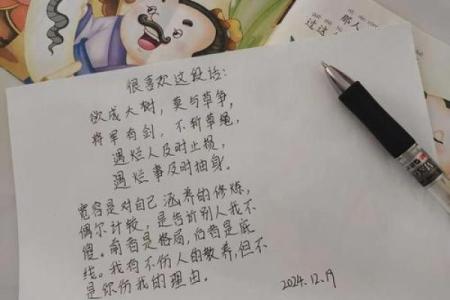 很喜欢这段话:
欲成大树，莫与草争，
将军有剑，不斩草绳，
遇烂人及时止损，
遇烂事及时抽身。
宽容是对自己涵养的修炼，
偶尔计较，是告诉别人我不
傻。前者是格局，后者是底
线。我有不伤人的教养，但不
是你伤我的理由。
2024.12.19
那人
过这